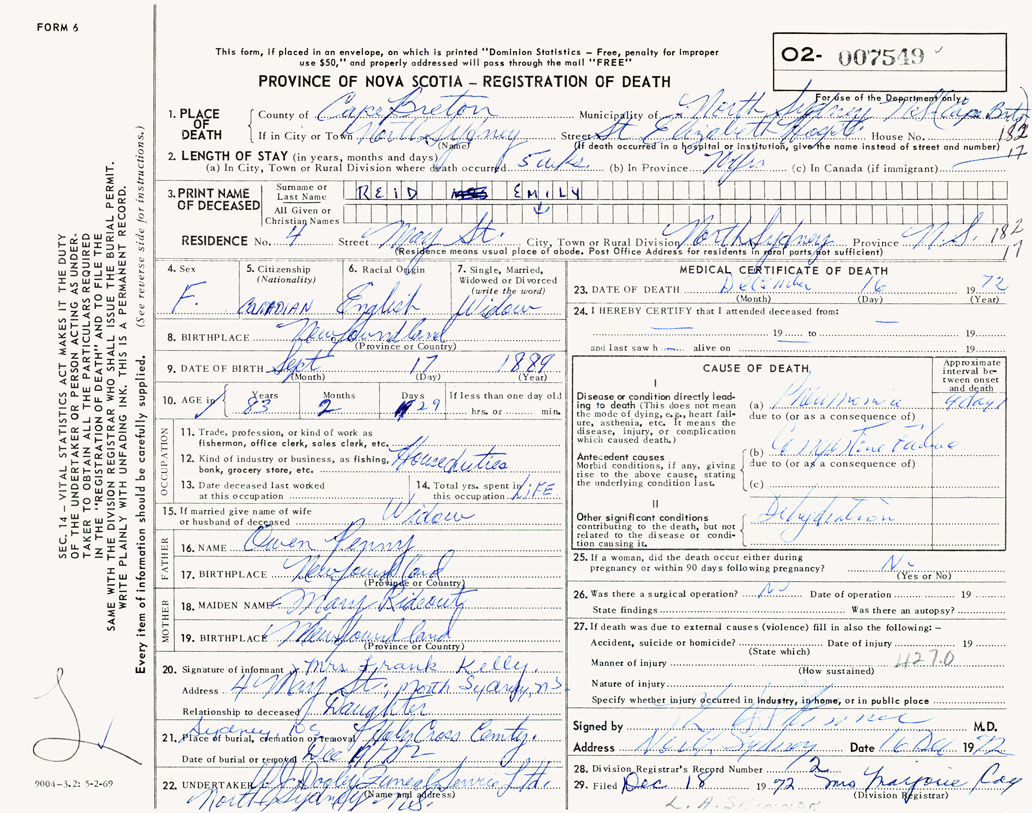 FORM 6
This form, if placed in an envelope, on which is printed "Dominion Statistics – Free, penalty for improper
use $50," and properly addressed will pass through the mail "FREE"
PROVINCE OF NOVA SCOTIA – REGISTRATION OF DEATH
O2- 007549
For use of the Department only
1. PLACE OF DEATH
County of Cape Breton
Municipality of North Sydney
If in City or Town North Sydney
(Name)
Street St. Elizabeth Hospit. House No.
182
17
(If death occurred in a hospital or institution, give the name instead of street and number)
2. LENGTH OF STAY (in years, months and days)
(a) In City, Town or Rural Division where death occurred 5 wks. (b) In Province (c) In Canada (if immigrant)
3. PRINT NAME OF DECEASED
Surname or Last Name REID EMILY
All Given or Christian Names
RESIDENCE No. 4 Street May St. City, Town or Rural Division North Sydney Province N.S. 182
17
(Residence means usual place of abode. Post Office Address for residents in rural parts not sufficient)
4. Sex
F.
5. Citizenship
(Nationality)
CANADIAN
6. Racial Origin
English
7. Single, Married,
Widowed or Divorced
(write the word)
Widow
8. BIRTHPLACE Newfoundland
(Province or Country)
9. DATE OF BIRTH Sept 17 1889
(Month) (Day) (Year)
10. AGE in
Years Months Days If less than one day old
83 2 29 hrs. or min.
OCCUPATION
11. Trade, profession, or kind of work as
fisherman, office clerk, sales clerk, etc.
12. Kind of industry or business, as fishing,
bank, grocery store, etc.
House duties
13. Date deceased last worked
at this occupation
14. Total yrs. spent in
this occupation LIFE
15. If married give name of wife
or husband of deceased Widow
FATHER
16. NAME Owen Penny
17. BIRTHPLACE Newfoundland
(Province or Country)
MOTHER
18. MAIDEN NAME Mary Rideout
19. BIRTHPLACE Newfoundland
(Province or Country)
20. Signature of informant Mrs. Frank Kelly.
Address 4 May St., North Sydney, N.S.
Relationship to deceased Daughter
21. Place of burial, cremation or removal Holy Cross Cemty.
Sydney
Date of burial or removal Dec
22. UNDERTAKER Funeral Service Ltd.
(Name and address)
North Sydney N.S.
MEDICAL CERTIFICATE OF DEATH
23. DATE OF DEATH December 16 1972
(Month) (Day) (Year)
24. I HEREBY CERTIFY that I attended deceased from:
19 to 19
and last saw h alive on 19
CAUSE OF DEATH
Approximate
interval be-
tween onset
and death
I
Disease or condition directly lead-
ing to death (This does not mean
the mode of dying, e.g., heart fail-
ure, asthenia, etc. It means the
disease, injury, or complication
which caused death.)
(a) Pneumonia
due to (or as a consequence of)
Antecedent causes
Morbid conditions, if any, giving
rise to the above cause, stating
the underlying condition last.
(b) Congestive Failure
due to (or as a consequence of)
(c)
II
Other significant conditions
contributing to the death, but not
related to the disease or condi-
tion causing it.
Dehydration
25. If a woman, did the death occur either during
pregnancy or within 90 days following pregnancy? No
(Yes or No)
26. Was there a surgical operation? No Date of operation 19
State findings Was there an autopsy?
27. If death was due to external causes (violence) fill in also the following: –
Accident, suicide or homicide? Date of injury 19
(State which)
Manner of injury 427.0
(How sustained)
Nature of injury
Specify whether injury occurred in industry, in home, or in public place
Signed by M.D.
Address North Sydney Date 16 Dec 1972
28. Division Registrar's Record Number 72
29. Filed Dec 18 1972 Mrs Marjorie
(Division Registrar)
L. A. SKINNER
SEC. 14 – VITAL STATISTICS ACT MAKES IT THE DUTY
OF THE UNDERTAKER OR PERSON ACTING AS UNDER-
TAKER TO OBTAIN ALL THE PARTICULARS REQUIRED
IN THE "REGISTRATION OF DEATH" AND TO FILE THE
SAME WITH THE DIVISION REGISTRAR WHO SHALL ISSUE THE BURIAL PERMIT.
WRITE PLAINLY WITH UNFADING INK. THIS IS A PERMANENT RECORD.
Every item of information should be carefully supplied. (See reverse side for instructions.)
9004-3.2: 5-2-69